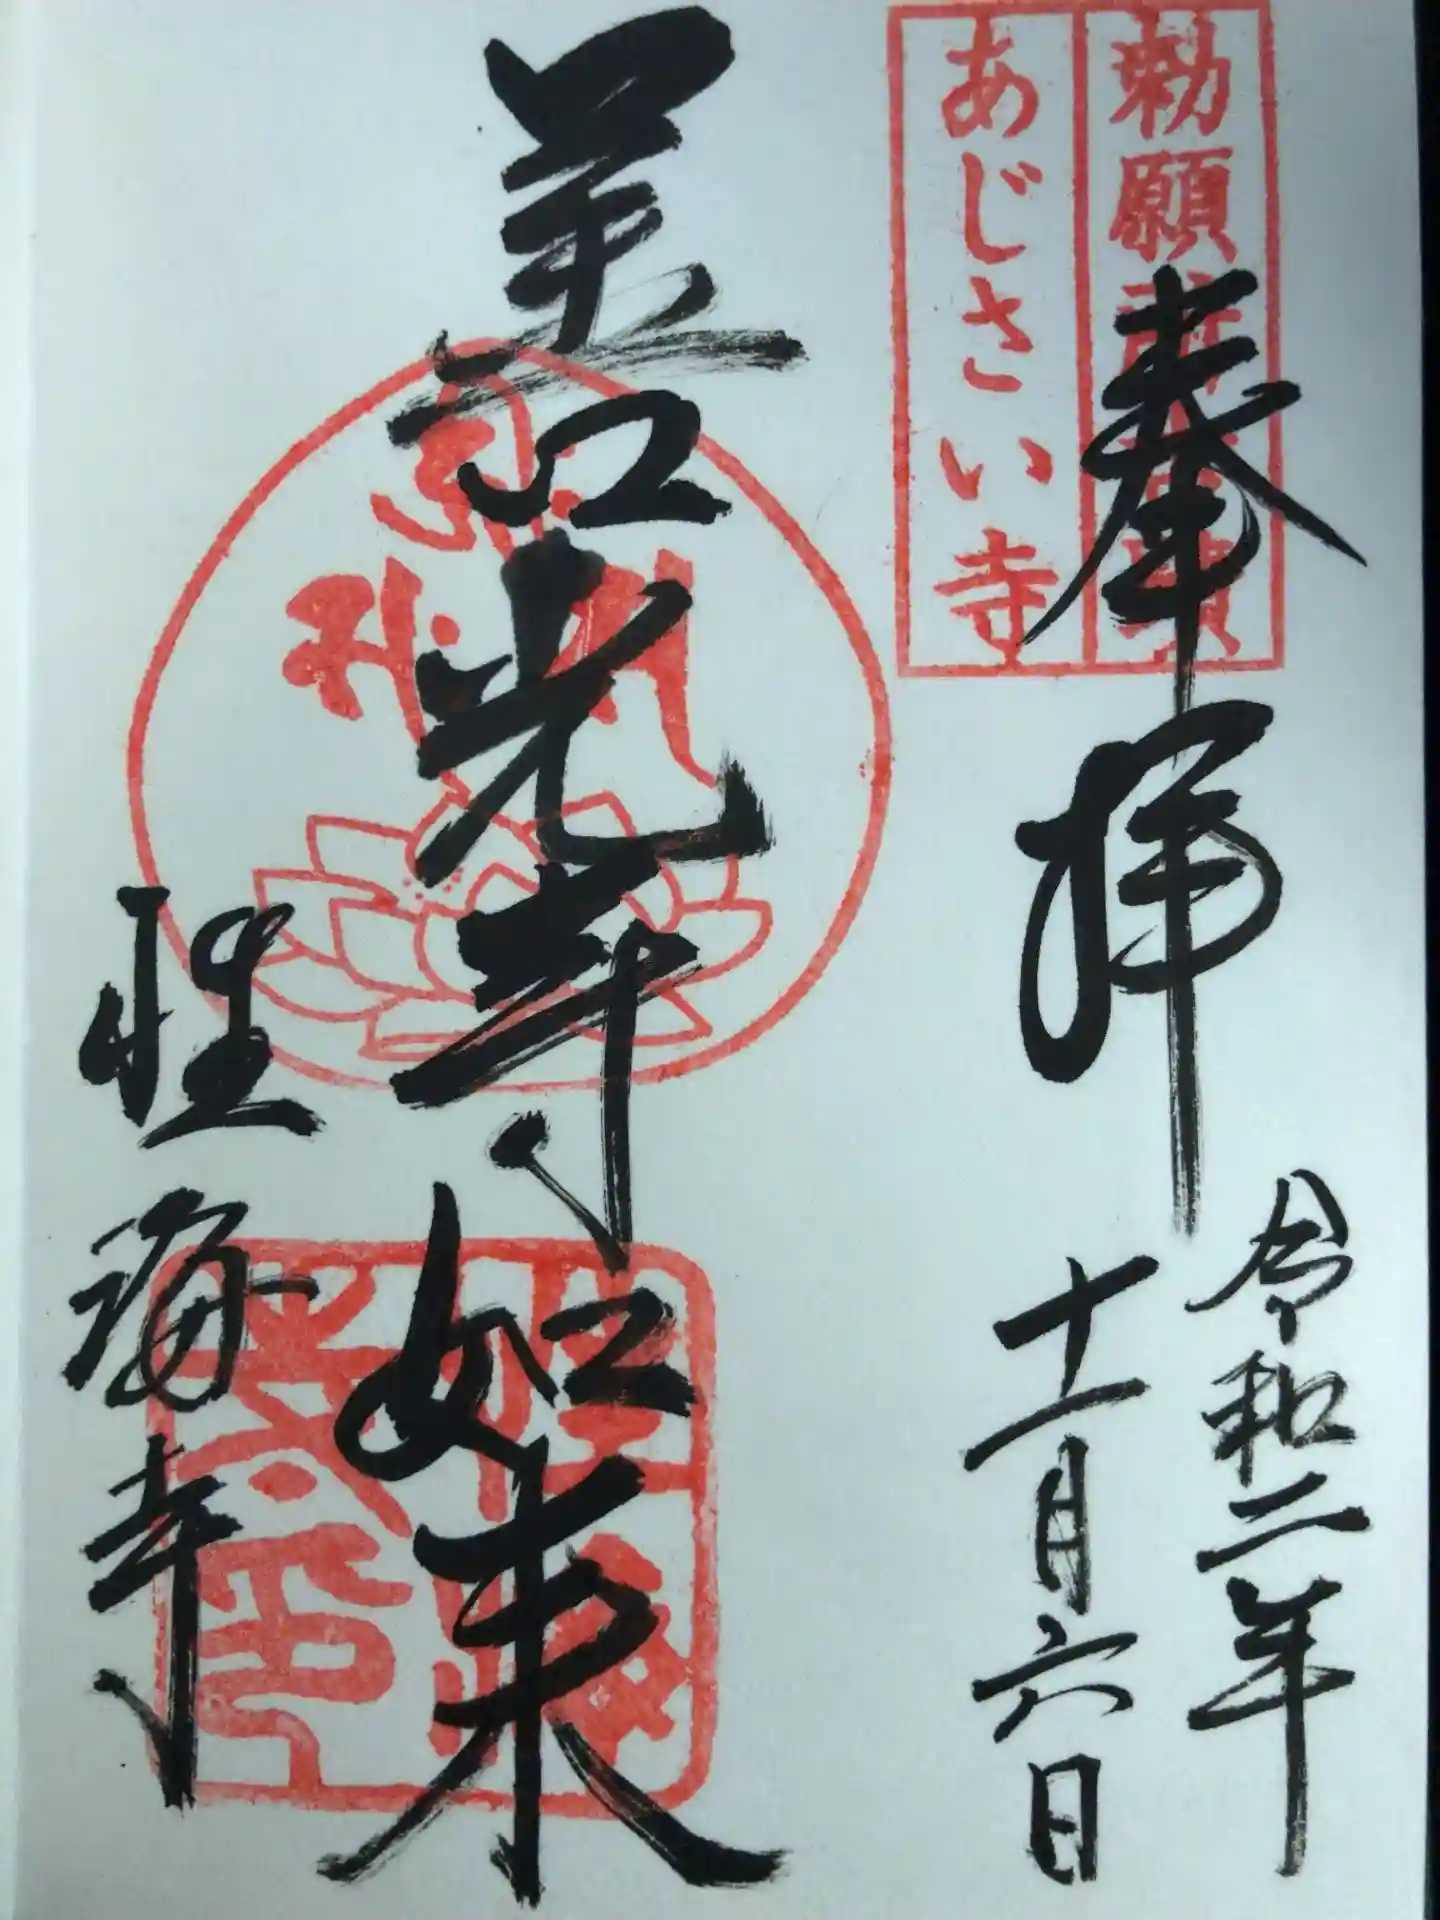 勅願
あじさい寺
奉拝
令和二年
十一月六日
善光寺如来
性海寺